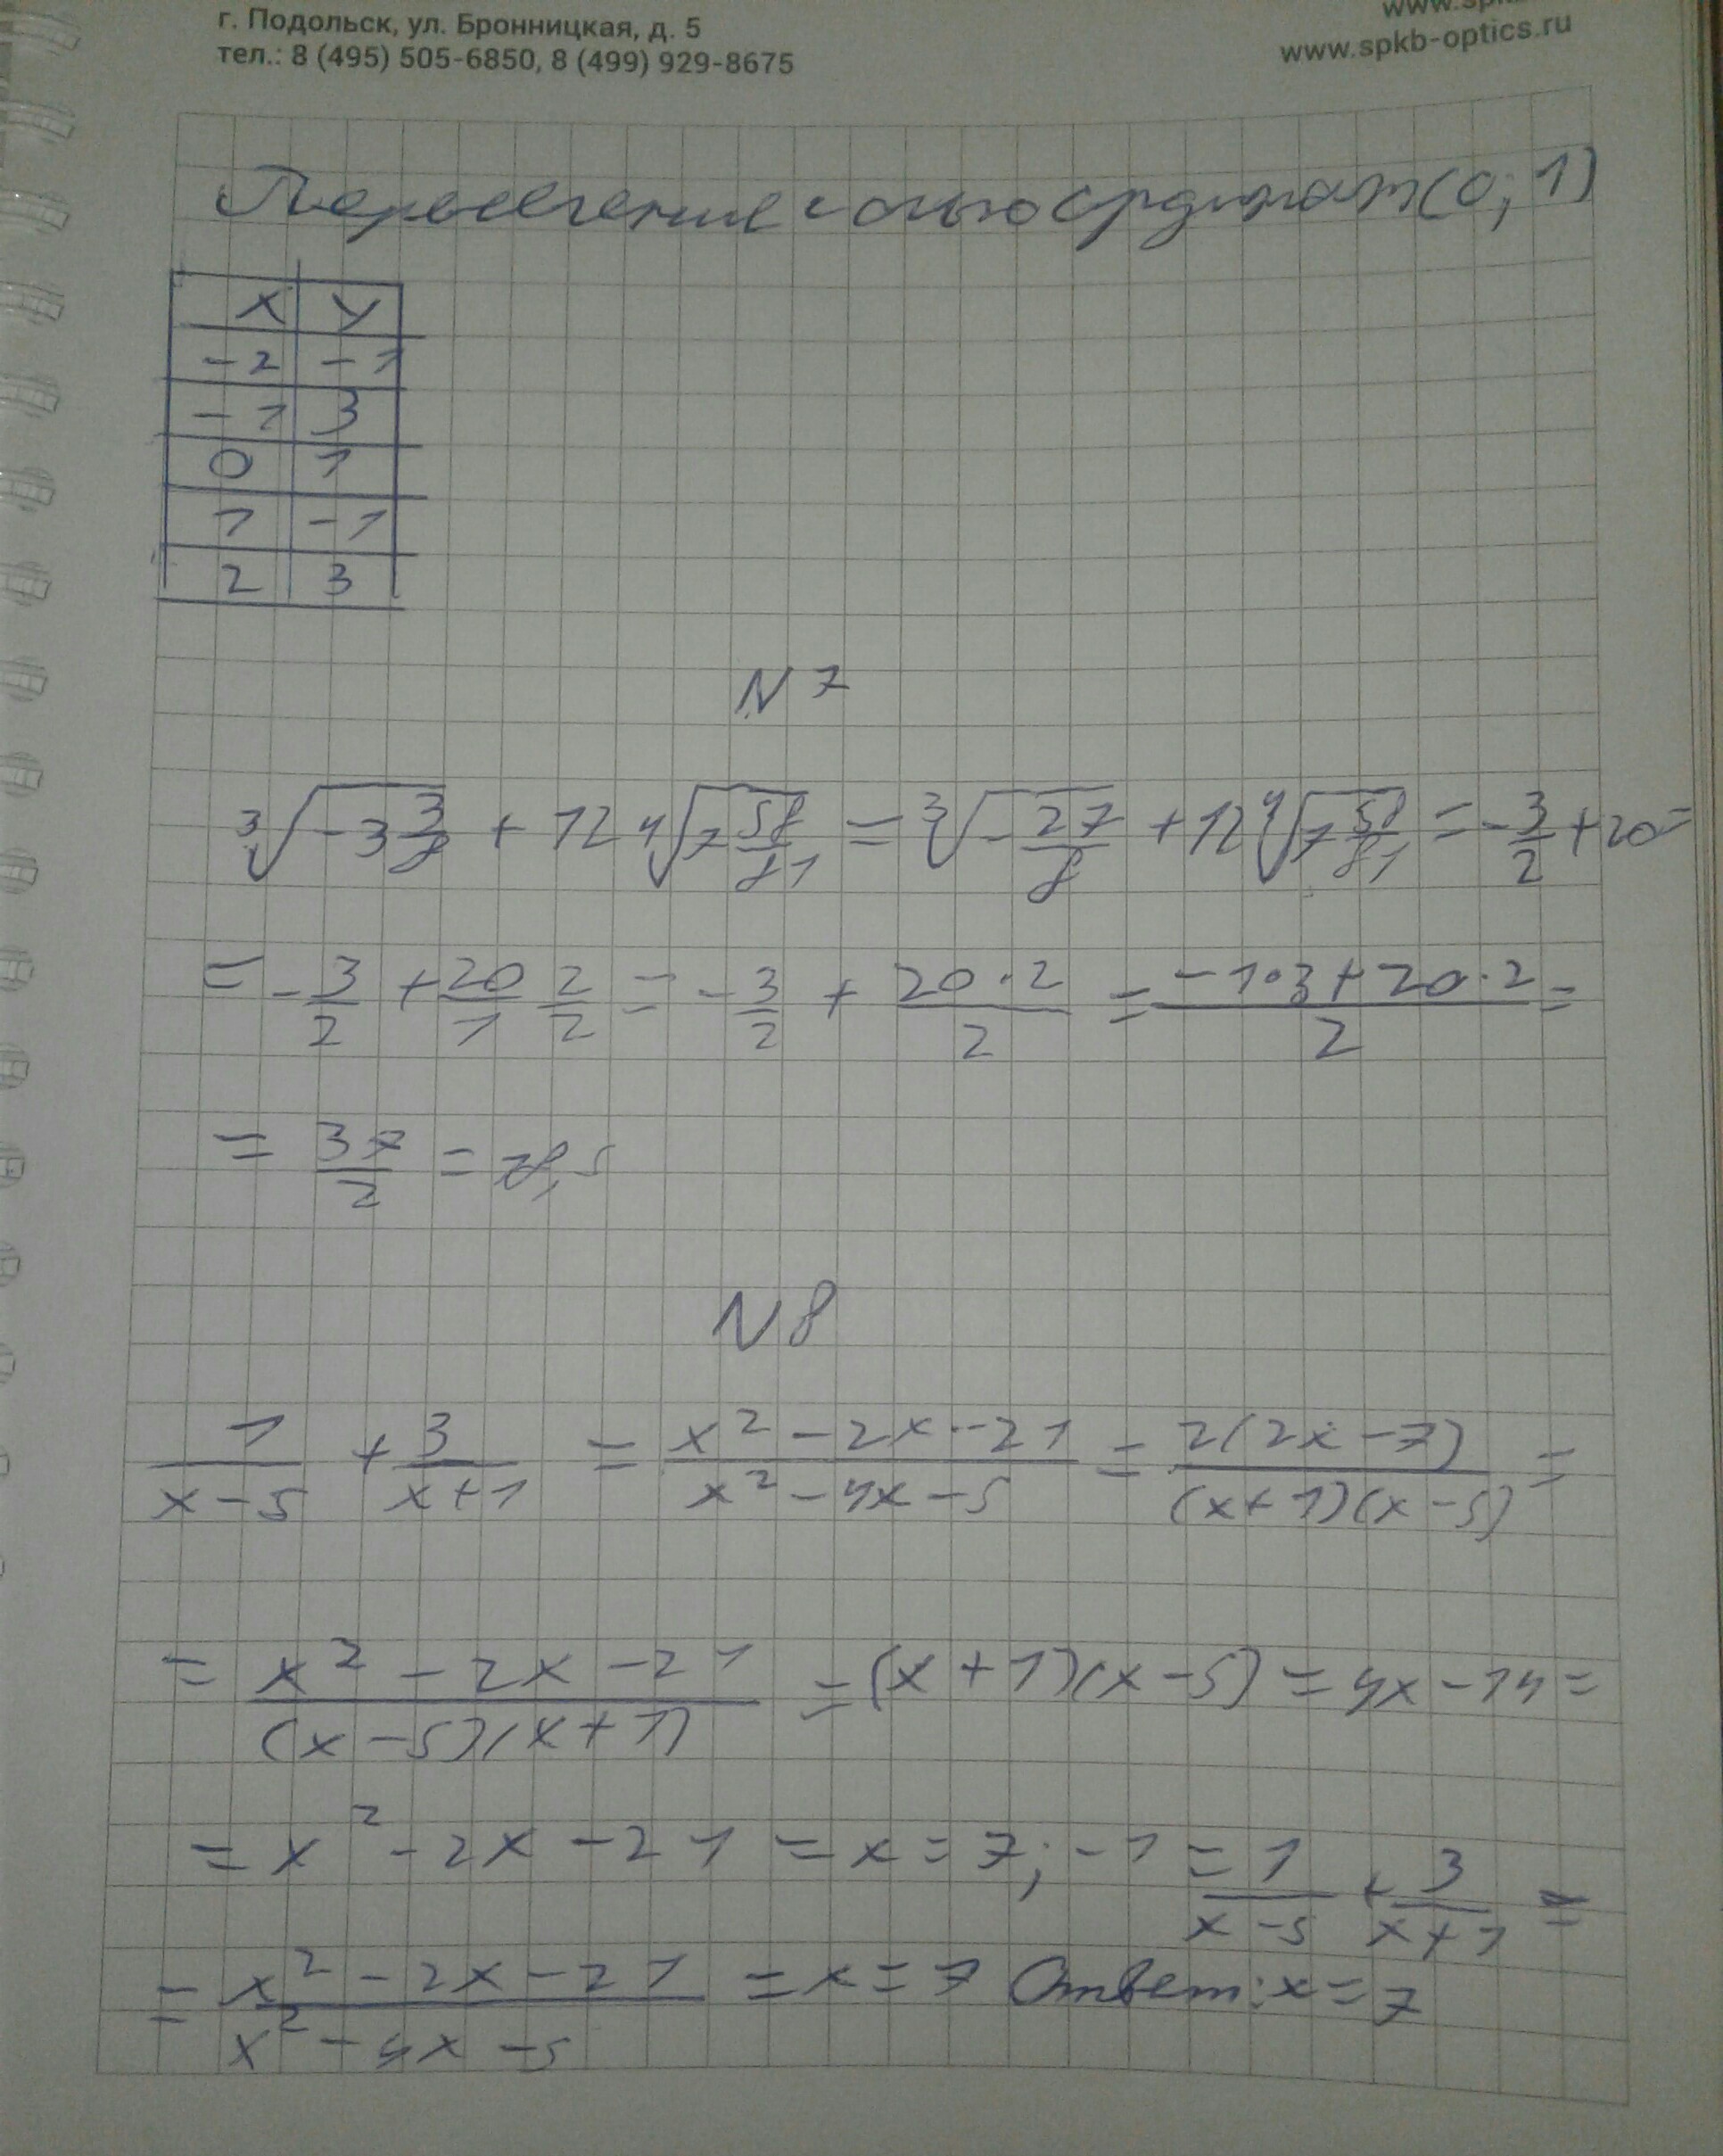 г. Подольск, ул. Бронницкая, д. 5
тел.: 8 (495) 505-6850, 8 (499) 929-8675
www.spkb-optics.ru
Пересечения с осью ординат (0; 1)
x y
-2 -1
-1 3
0 1
1 -1
2 3
N7
∛(-3 3/8) + 12 ∜(7 58/81) = ∛(-27/8) + 12 ∜(7 58/81) = -3/2 + 20 =
= -3/2 + 20/1 2/2 = -3/2 + (20·2)/2 = (-1·3+20·2)/2 =
= 37/2 = 18,5
N8
1/(x-5) + 3/(x+1) = (x²-2x-21)/(x²-4x-5) = 2(2x-7)/((x+1)(x-5)) =
= (x²-2x-21)/((x-5)(x+1)) = (x+1)(x-5) = 4x-14 =
= x²-2x-21 = x = 7; -1 = 1/(x-5) + 3/(x+1) =
= (x²-2x-21)/(x²-4x-5) = x = 7 Ответ: x = 7